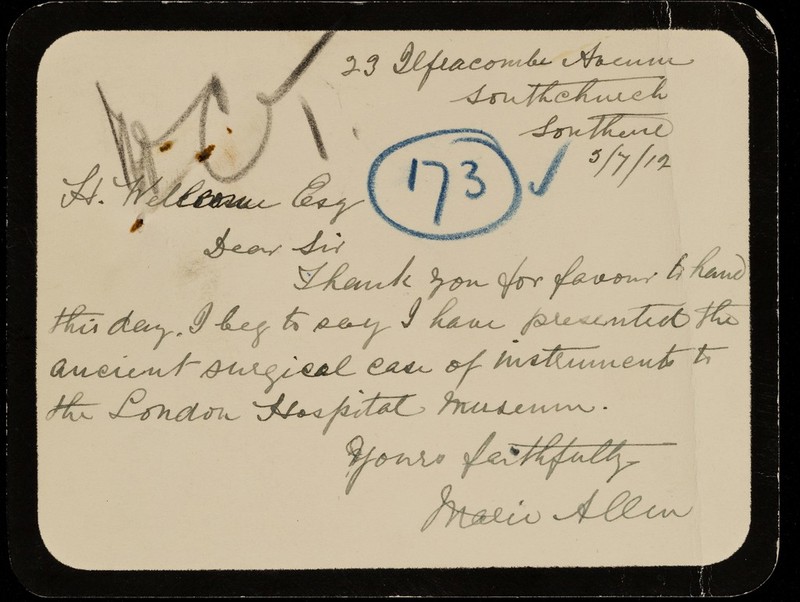 23 Ilfracombe Avenue
Southchurch
Southend
5/7/12
173
H. Wellcome Esq
Dear Sir
Thank you for favour to hand
this day. I beg to say I have presented the
ancient surgical case of instruments to
the London Hospital Museum.
Yours faithfully
Marie Allen